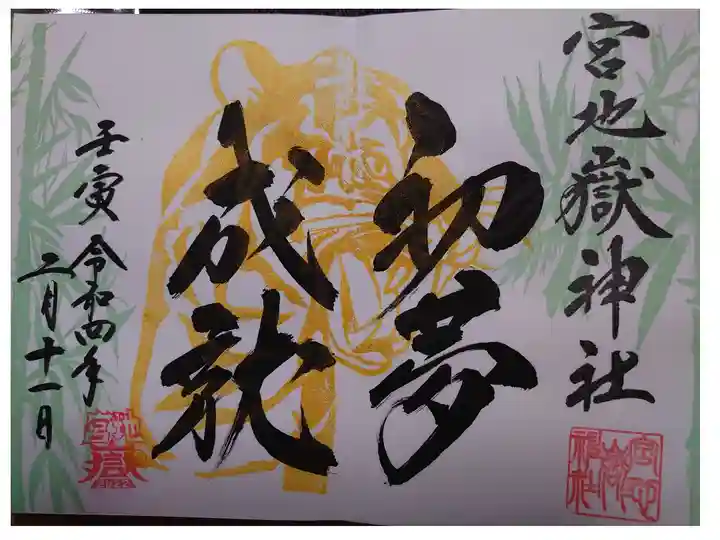 宮地嶽神社
初夢
成就
壬寅 令和四年
二月十一日
宮地嶽神社